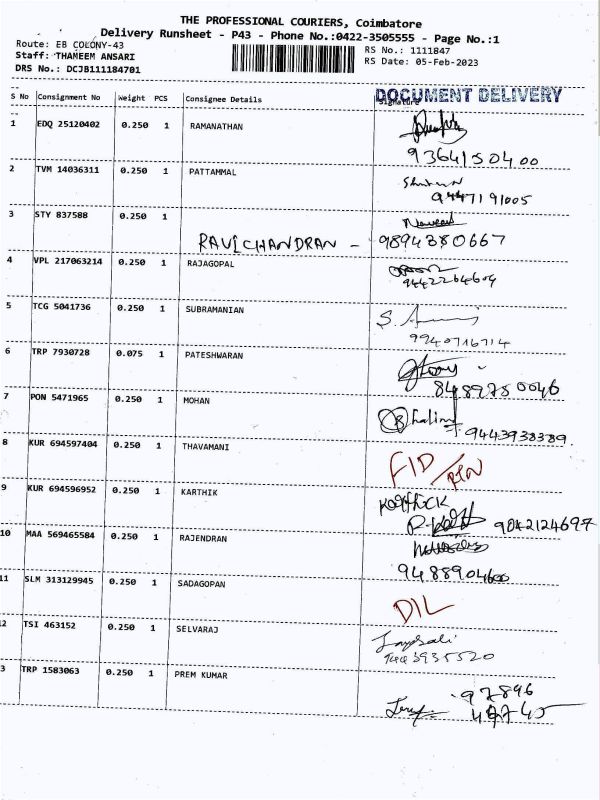 THE PROFESSIONAL COURIERS, Coimbatore
Delivery Runsheet - P43 - Phone No.:0422-3505555 - Page No.:1
Route: EB COLONY-43
RS No.: 1111847
Staff: THAMEEM ANSARI
RS Date: 05-Feb-2023
DRS No.: DCJB111184701
DOCUMENT DELIVERY
S No Consignment No Weight PCS Consignee Details Signature
1 EDQ 25120402 0.250 1 RAMANATHAN
9364150400
2 TVM 14036311 0.250 1 PATTAMMAL
9447191005
3 STY 837588 0.250 1
RAVICHANDRAN - 9894380667
4 VPL 217063214 0.250 1 RAJAGOPAL
9442264604
5 TCG 5041736 0.250 1 SUBRAMANIAN
9940716714
6 TRP 7930728 0.075 1 PATESHWARAN
8489780046
7 PON 5471965 0.250 1 MOHAN
9443938389
8 KUR 694597404 0.250 1 THAVAMANI
9 KUR 694596952 0.250 1 KARTHIK
9042124697
10 MAA 569465584 0.250 1 RAJENDRAN
9488904600
11 SLM 313129945 0.250 1 SADAGOPAN
D/L
2 TSI 463152 0.250 1 SELVARAJ
3 TRP 1583063 0.250 1 PREM KUMAR
97896